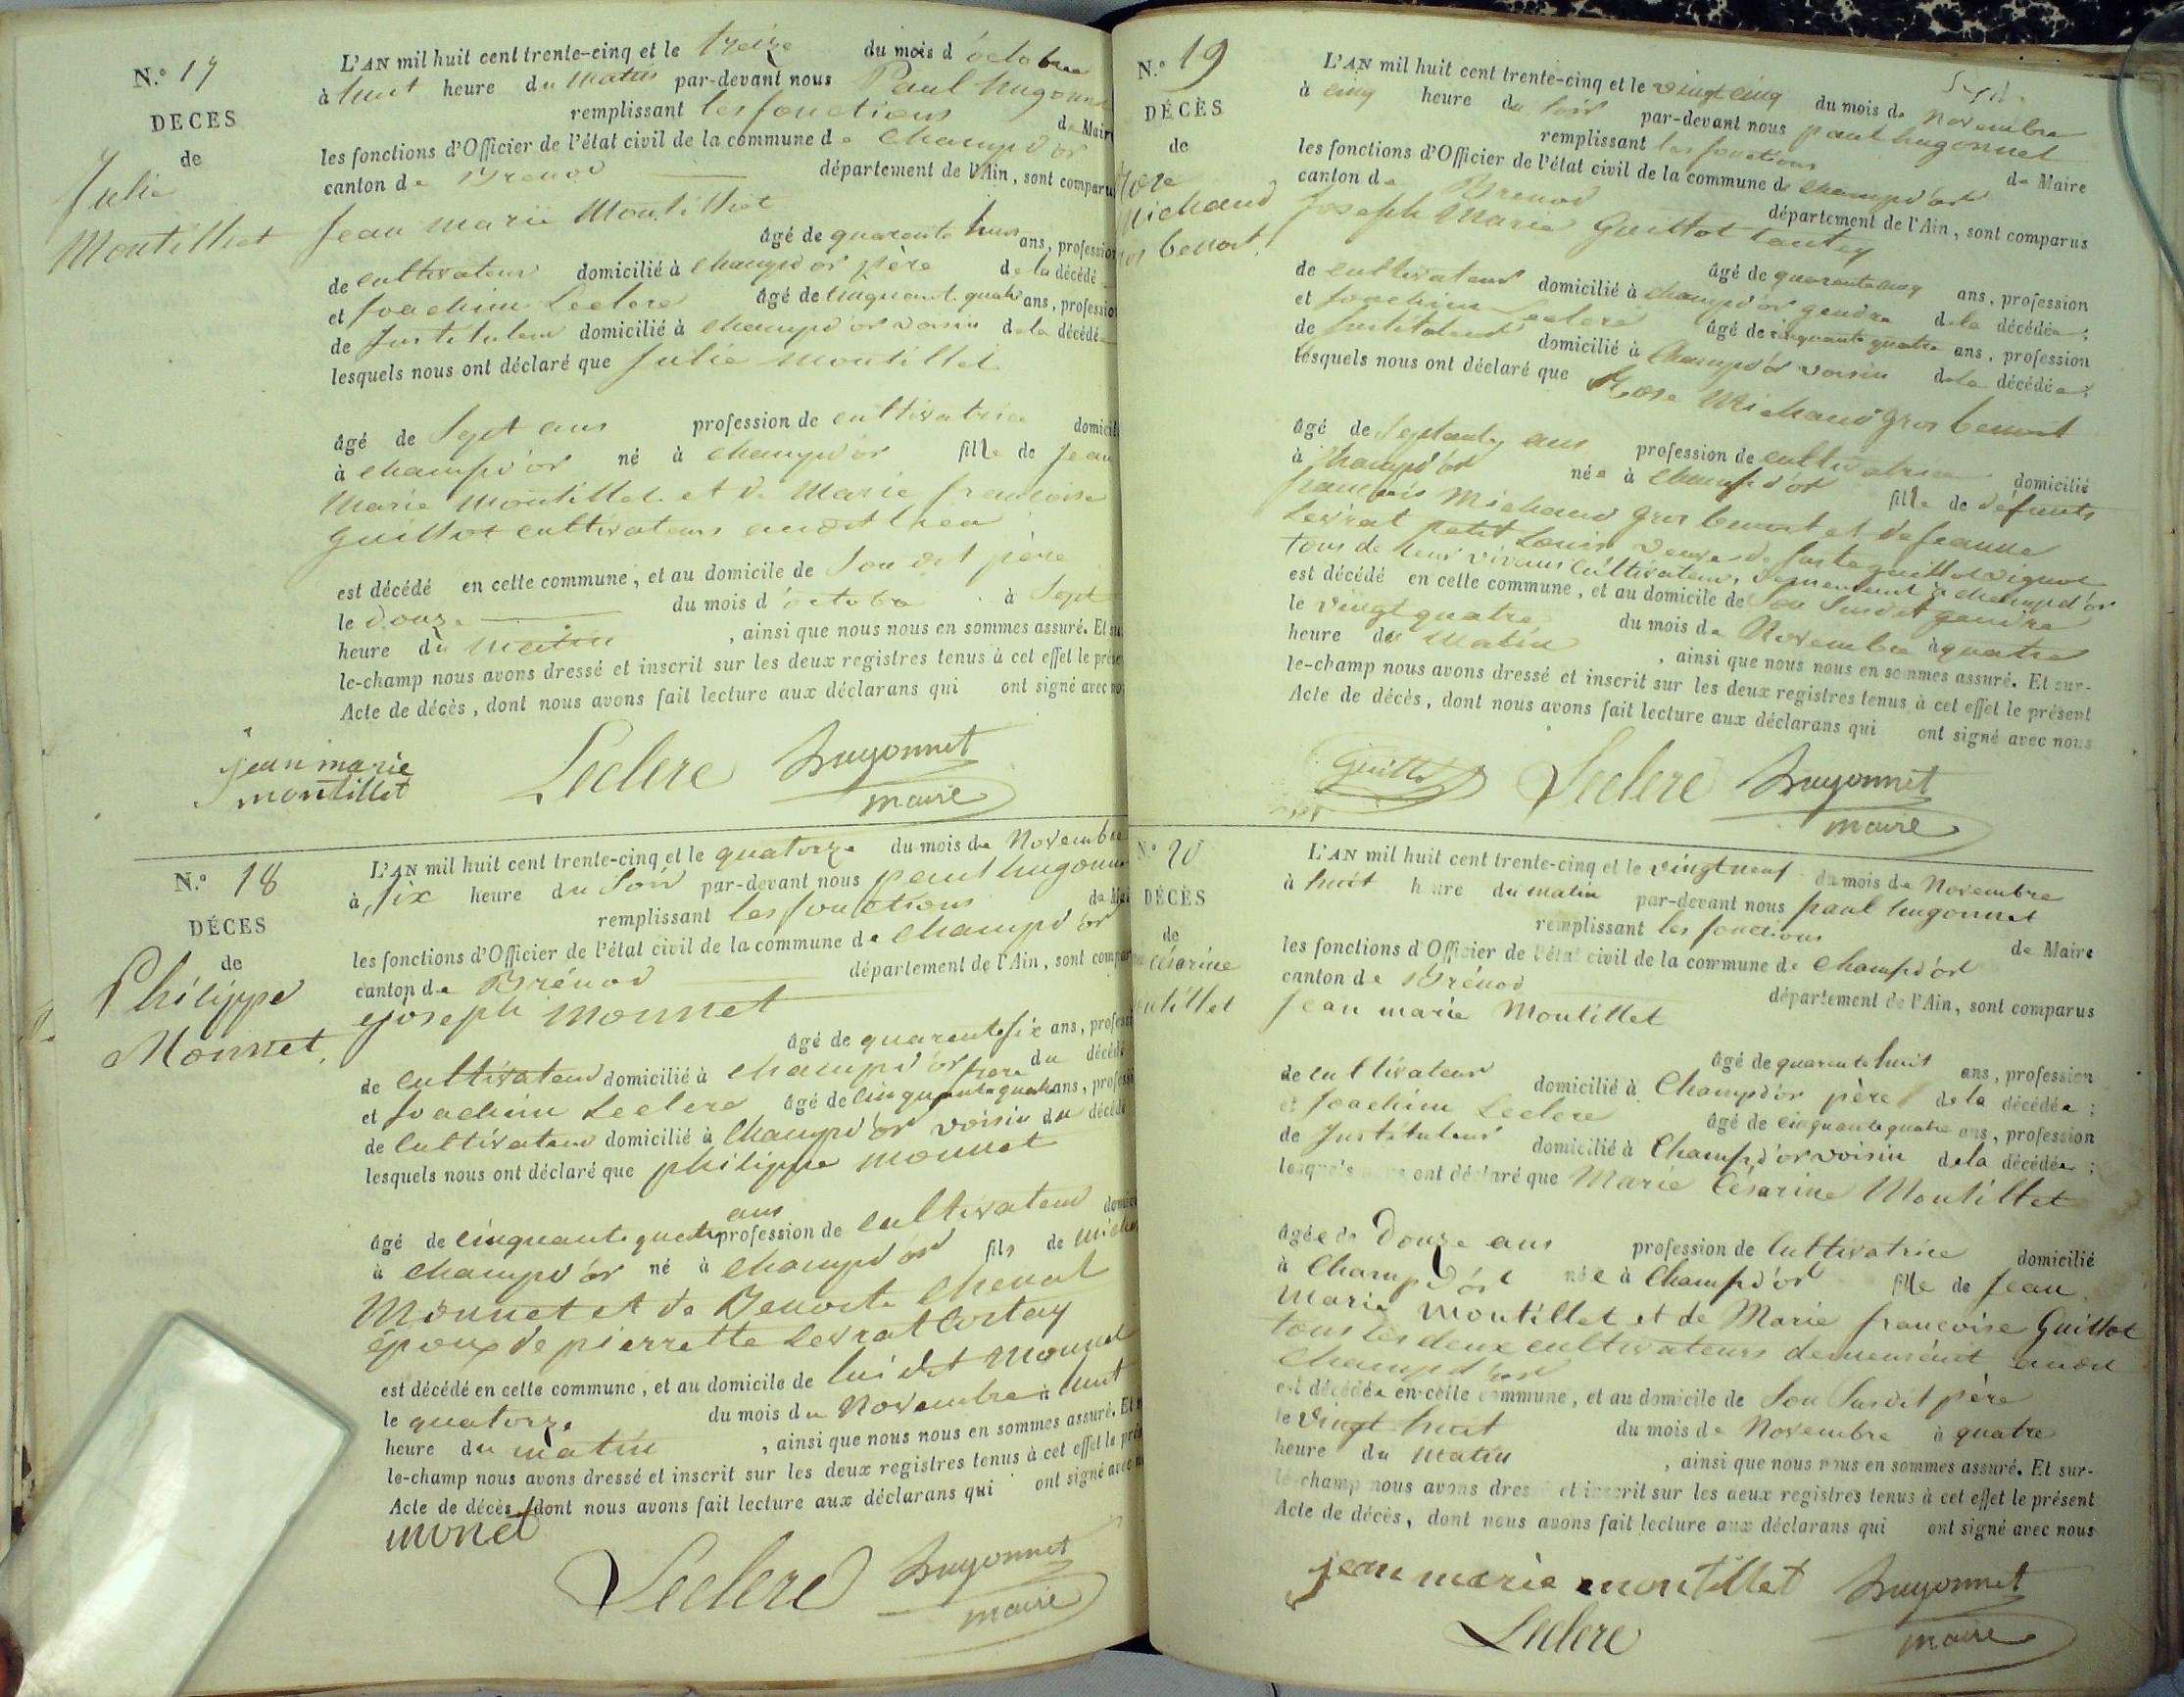 N.° 17
DECES
de
Julie
Montillet
L'AN mil huit cent trente-cinq et le treize du mois d'octobre
à huit heure du matin par-devant nous Paul hugonnet
remplissant les fonctions de Maire
les fonctions d'Officier de l'état civil de la commune de Champd'or
canton de Brenod département de l'Ain, sont comparu
Jean marie Montillet
âgé de quarante huit ans, profession
de cultivateur domicilié à champd'or père de la décédé
et Joachim Leclere âgé de cinquante quatre ans, profession
de Instituteur domicilié à champd'or voisin dela décédé
lesquels nous ont déclaré que Julie Montillet
âgé de Sept ans profession de cultivatrice domicilié
à champd'or né à champd'or fille de Jean
Marie Montillet et de Marie francoise
Guillot cultivateurs audit lieu
est décédé en cette commune, et au domicile de Son dit père
le douze du mois d'octobre à Sept
heure du matin, ainsi que nous nous en sommes assuré. Et sur
le-champ nous avons dressé et inscrit sur les deux registres tenus à cet effet le présent
Acte de décès, dont nous avons fait lecture aux déclarans qui ont signé avec nous
jean marie
montillet Leclere hugonnet
maire
N.° 18
DÉCES
de
Philippe
Monnet
L'AN mil huit cent trente-cinq et le quatorze du mois de Novembre
à Six heure du Soir par-devant nous paul hugonnet
remplissant les fonctions de Maire
les fonctions d'Officier de l'état civil de la commune de Champd'or
canton de Brénod département de l'Ain, sont comparu
joseph Monnet
âgé de quarante six ans, profession
de cultivateur domicilié à champd'or frere du décédé
et Joachim Leclere âgé de cinquante quatre ans, profession
de Cultivateur domicilié à Champd'or voisin du décédé
lesquels nous ont déclaré que philippe monnet
âgé de cinquante quatre ans profession de cultivateur domicilié
à champd'or né à champd'or fils de
Monnet et de Benoite Cheval
époux de pierrette Levrat Cortay
est décédé en cette commune, et au domicile de lui dit Monnet
le quatorze du mois de Novembre à huit
heure du matin, ainsi que nous nous en sommes assuré. Et
le-champ nous avons dressé et inscrit sur les deux registres tenus à cet effet le présent
Acte de décès, dont nous avons fait lecture aux déclarans qui ont signé avec
monet
Leclere hugonnet
maire
N.° 19
DÉCÈS
de
Rose
Michaud
gros benoit
L'AN mil huit cent trente-cinq et le vingt cinq du mois de Novembre
à cinq heure du Soir par-devant nous paul hugonnet
remplissant les fonctions de Maire
les fonctions d'Officier de l'état civil de la commune de champd'or
canton de Brenod département de l'Ain, sont comparus
Joseph Marie Guillot tautey
âgé de quarante cinq ans, profession
de cultivateur domicilié à champd'or gendre dela décédée;
et Joachim Leclere âgé de cinquante quatre ans, profession
de Instituteur domicilié à Champd'or voisin dela décédée;
lesquels nous ont déclaré que Rose Michaud gros benoit
âgé de ans profession de cultivatrice domicilié
à Champd'or née à Champd'or fille de défunts
francois Michaud gros benoit et de Jeanne
Levrat petit Louis veuve de Juste guillot vignot
tous de leur vivans Cultivateurs, demeurant à champd'or
est décédé en cette commune, et au domicile de Son Susdit gendre
le vingt quatre du mois de Novembre à quatre
heure du Matin, ainsi que nous nous en sommes assuré. Et sur-
le-champ nous avons dressé et inscrit sur les deux registres tenus à cet effet le présent
Acte de décès, dont nous avons fait lecture aux déclarans qui ont signé avec nous
Guillot Leclere hugonnet
maire
N.° 20
DÉCÈS
de
césarine
montillet
L'AN mil huit cent trente-cinq et le vingt neuf du mois de Novembre
à huit heure du matin par-devant nous paul hugonnet
remplissant les fonctions de Maire
les fonctions d'Officier de l'état civil de la commune de Champd'or
canton de Brénod département de l'Ain, sont comparus
Jean marie Montillet
âgé de quarante huit ans, profession
de cultivateur domicilié à Champd'or père dela décédée;
et Joachim Leclere âgé de cinquante quatre ans, profession
de Instituteur domicilié à Champd'or voisin dela décédée;
lesquels nous ont déclaré que Marie Césarine Montillet
âgée de Douze ans profession de Cultivatrice domicilié
à Champd'or née à Champd'or fille de Jean
Marie Montillet et de Marie francoise Guillot
tous les deux cultivateurs demeurant audit
Champd'or
est décédée en cette commune, et au domicile de Son Susdit père
le vingt huit du mois de Novembre à quatre
heure du Matin, ainsi que nous nous en sommes assuré. Et sur-
le-champ nous avons dressé et inscrit sur les deux registres tenus à cet effet le présent
Acte de décès, dont nous avons fait lecture aux déclarans qui ont signé avec nous
jean marie montillet hugonnet
Leclere maire